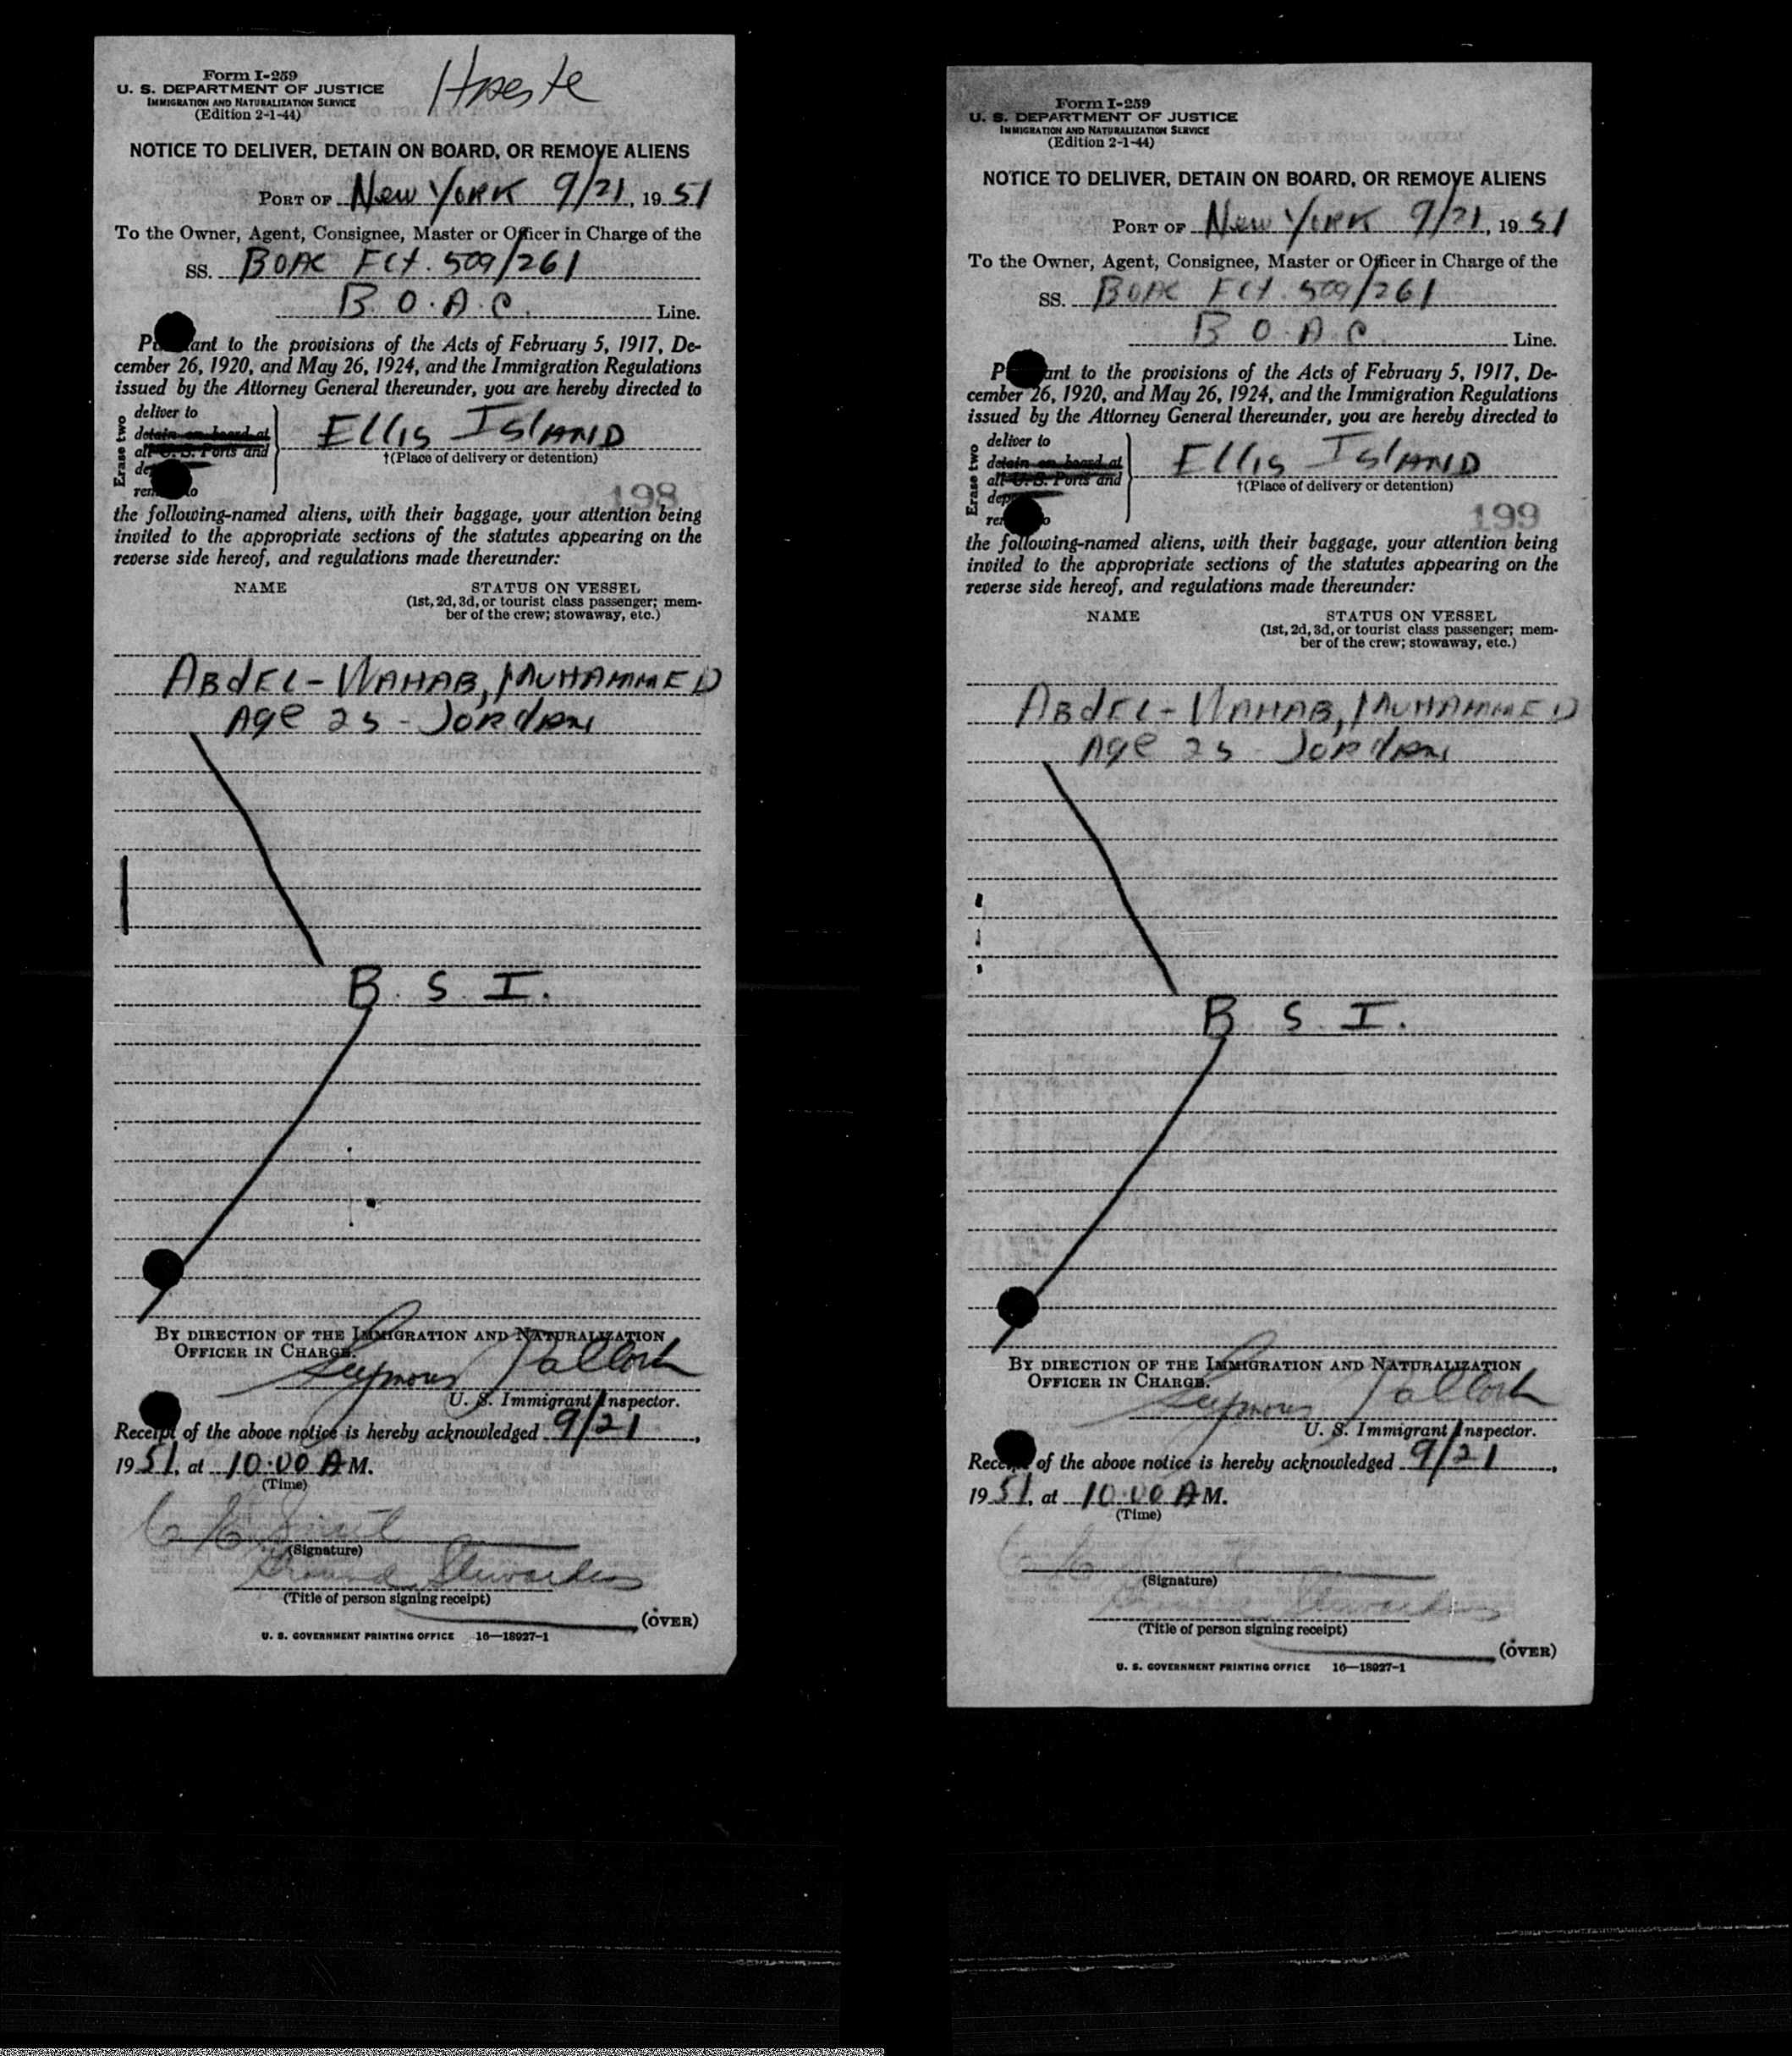 Form I-259
U. S. DEPARTMENT OF JUSTICE
IMMIGRATION AND NATURALIZATION SERVICE
(Edition 2-1-44)
NOTICE TO DELIVER, DETAIN ON BOARD, OR REMOVE ALIENS
PORT OF New YORK 9/21, 1951
To the Owner, Agent, Consignee, Master or Officer in Charge of the
SS. BOAC FLT. 509/261
B.O.A.C. Line.
Pursuant to the provisions of the Acts of February 5, 1917, De-
cember 26, 1920, and May 26, 1924, and the Immigration Regulations
issued by the Attorney General thereunder, you are hereby directed to
Erase two
deliver to
detain on board at
all U. S. Ports and
ELLIS ISLAND
†(Place of delivery or detention)
198
the following-named aliens, with their baggage, your attention being
invited to the appropriate sections of the statutes appearing on the
reverse side hereof, and regulations made thereunder:
NAME STATUS ON VESSEL
(1st, 2d, 3d, or tourist class passenger; mem-
ber of the crew; stowaway, etc.)
ABdEL-WAHAB, MUHAMMED
Age 25 - JORdAN
B. S. I.
BY DIRECTION OF THE IMMIGRATION AND NATURALIZATION
OFFICER IN CHARGE.
Seymour Pallock
U. S. Immigrant Inspector.
Receipt of the above notice is hereby acknowledged 9/21,
1951, at 10:00 A M.
(Time)
(Signature)
Ground Stewardess
(Title of person signing receipt)
(OVER)
U. S. GOVERNMENT PRINTING OFFICE 16—18927-1
Form I-259
U. S. DEPARTMENT OF JUSTICE
IMMIGRATION AND NATURALIZATION SERVICE
(Edition 2-1-44)
NOTICE TO DELIVER, DETAIN ON BOARD, OR REMOVE ALIENS
PORT OF New YORK 9/21, 1951
To the Owner, Agent, Consignee, Master or Officer in Charge of the
SS. BOAC FLT. 509/261
B.O.A.C. Line.
Pursuant to the provisions of the Acts of February 5, 1917, De-
cember 26, 1920, and May 26, 1924, and the Immigration Regulations
issued by the Attorney General thereunder, you are hereby directed to
Erase two
deliver to
detain on board at
all U. S. Ports and
ELLIS ISLAND
†(Place of delivery or detention)
199
the following-named aliens, with their baggage, your attention being
invited to the appropriate sections of the statutes appearing on the
reverse side hereof, and regulations made thereunder:
NAME STATUS ON VESSEL
(1st, 2d, 3d, or tourist class passenger; mem-
ber of the crew; stowaway, etc.)
ABdEL-WAHAB, MUHAMMED
Age 25 - JORdAN
B S. I.
BY DIRECTION OF THE IMMIGRATION AND NATURALIZATION
OFFICER IN CHARGE.
Seymour Pallock
U. S. Immigrant Inspector.
Receipt of the above notice is hereby acknowledged 9/21,
1951, at 10:00 A M.
(Time)
(Signature)
Ground Stewardess
(Title of person signing receipt)
(OVER)
U. S. GOVERNMENT PRINTING OFFICE 16—18927-1